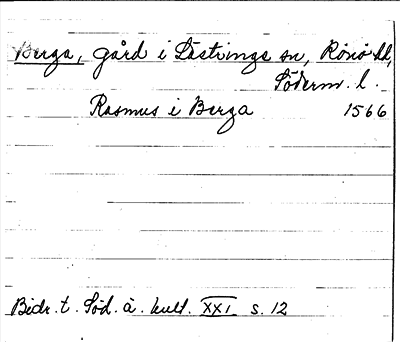 Berga, gård i Lästringe sn, Rönö hd,
Söderm. l.
Rasmus i Berga 1566
Bidr. t. Söd. ä. kult. XXI s. 12